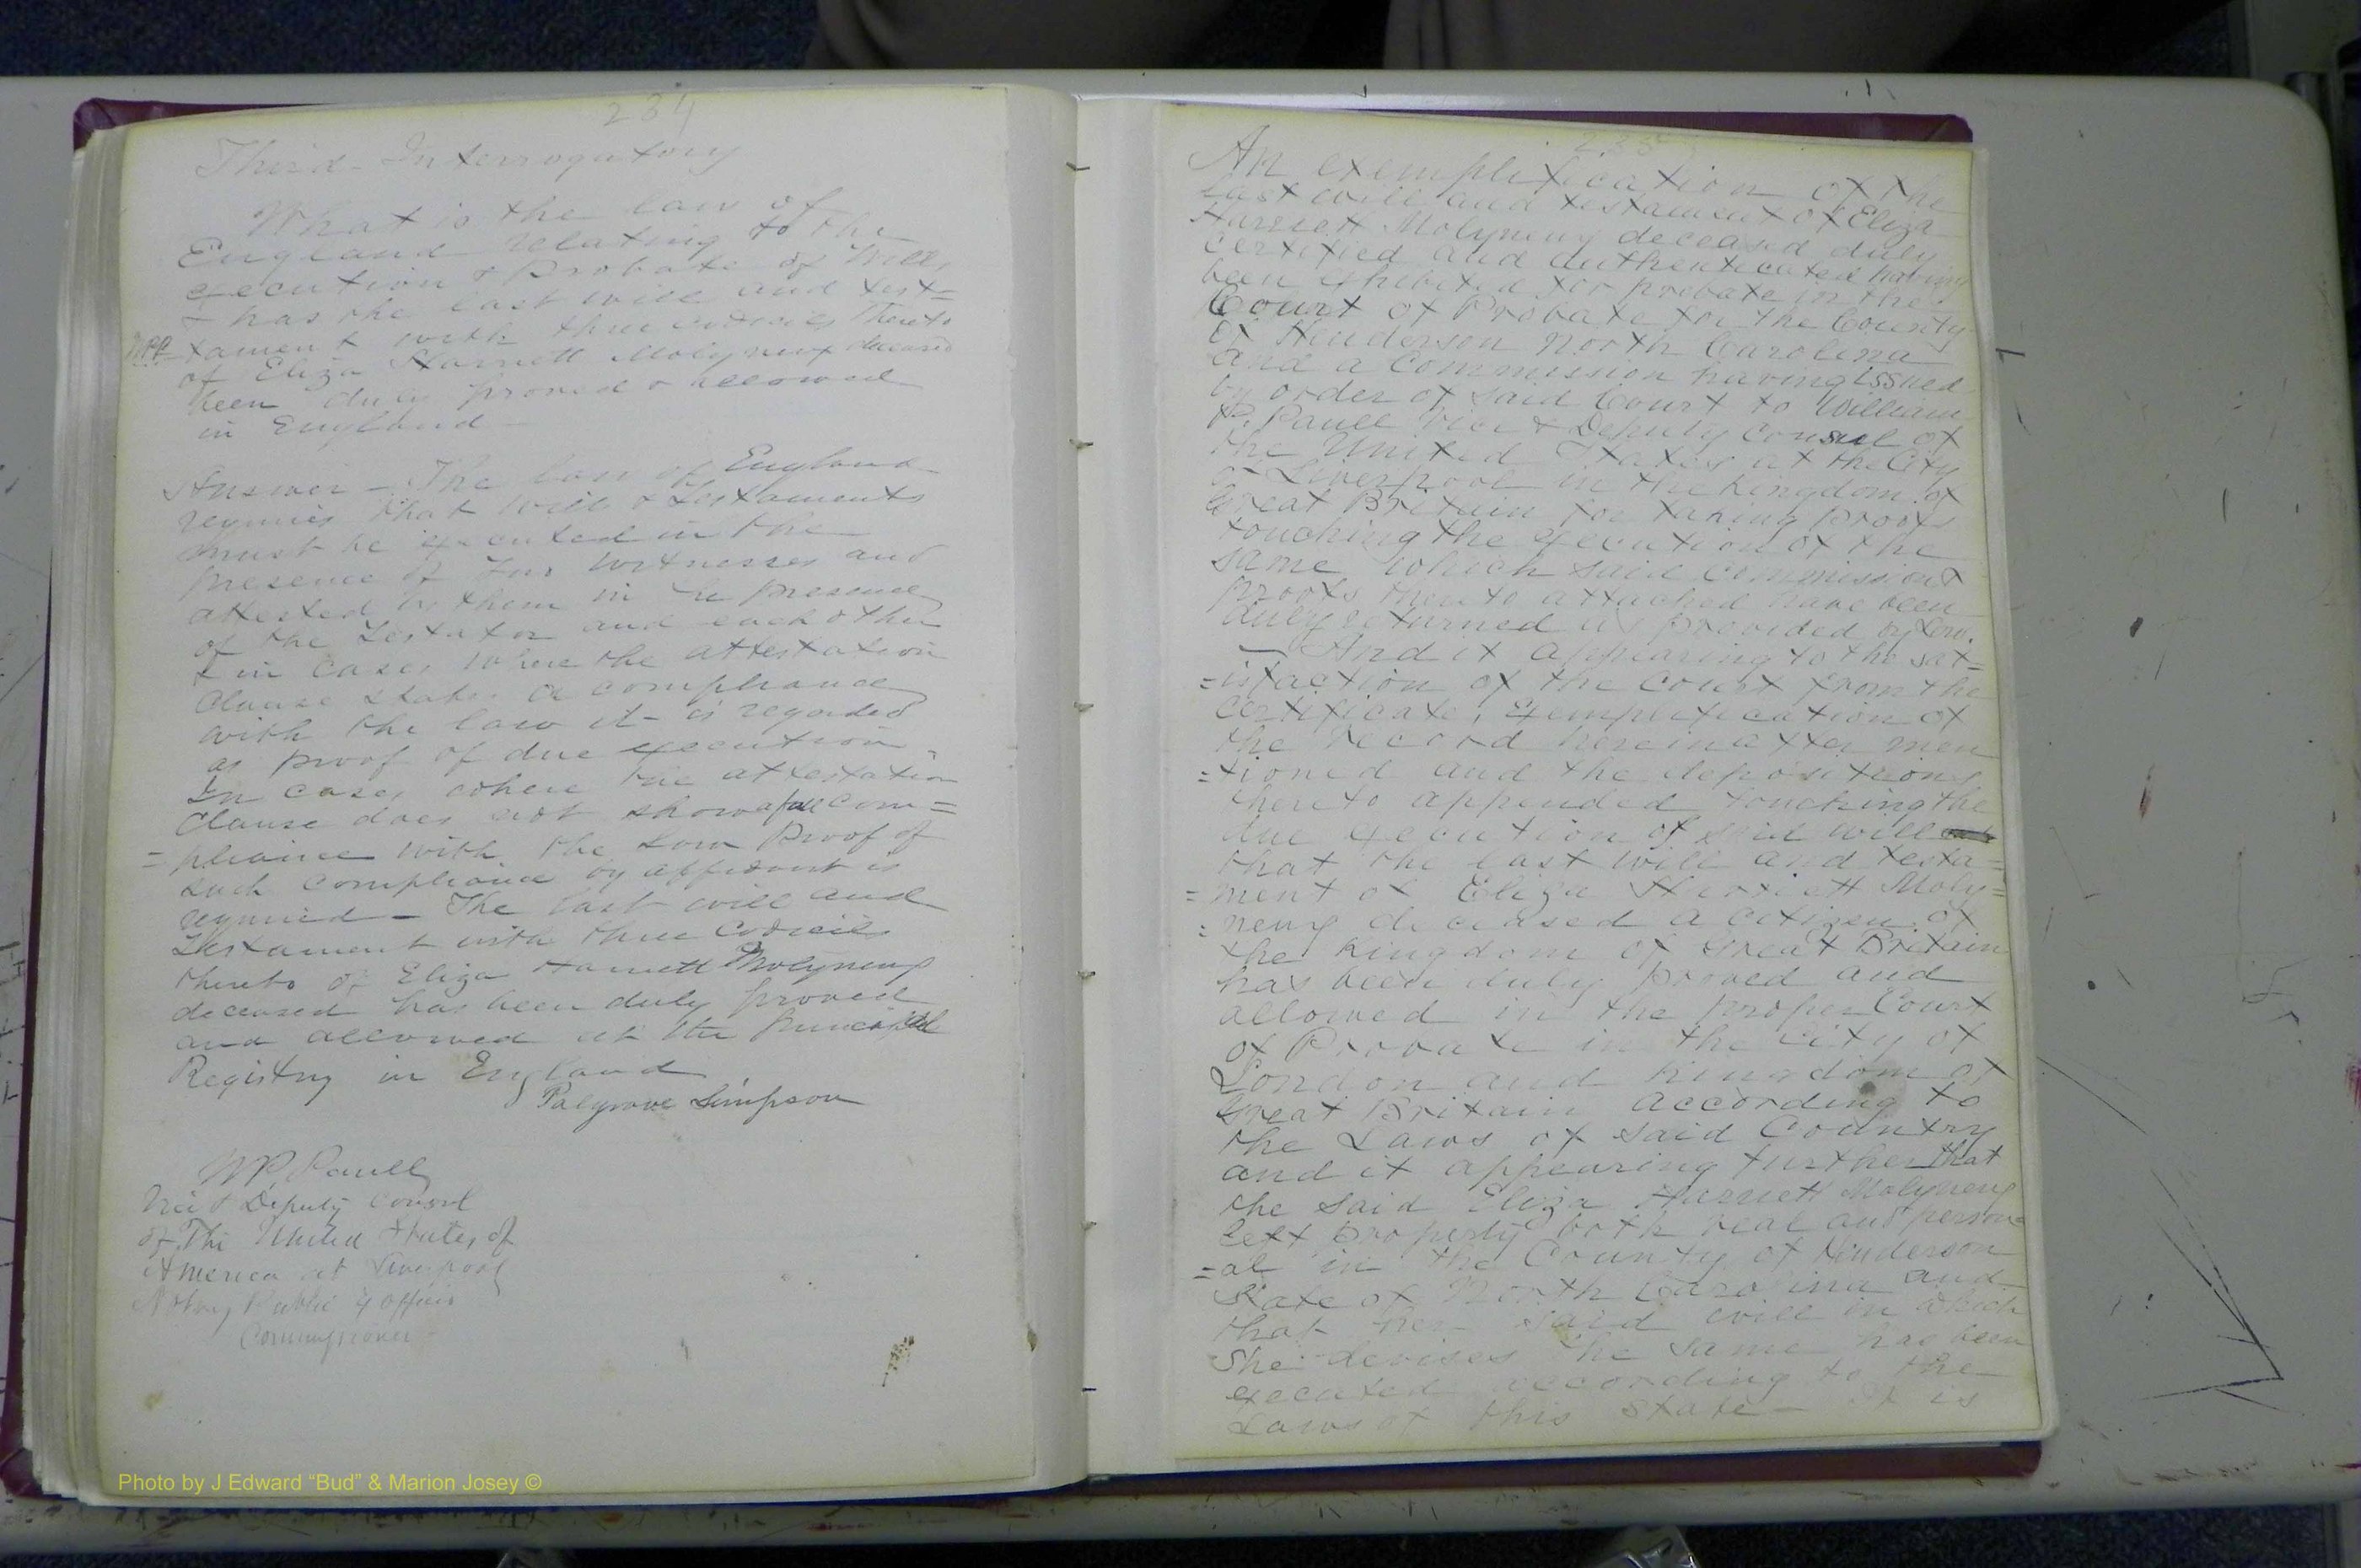 234
Third - Interrogatory
What is the law of
England relating to the
execution & Probate of Wills
& has the last will and test=
WPP tament with three codicils thereto
of Eliza Harriett Molyneux deceased
been duly proved & allowed
in England -
Answer - The law of England
requires that Wills & testaments
must be executed in the
presence of two witnesses and
attested by them in the presence
of the Testator and each other
& in cases where the attestation
Clause states a compliance
with the law it is regarded
as proof of due execution.
In cases where the attestation
Clause does not show a full com=
=pliance with the law Proof of
such compliance by affidavit is
required - The last will and
Testament with three codicils
thereto of Eliza Harriett Molyneux
deceased has been duly proved
and allowed at the principal
Registry in England
Palgrave Simpson
W P, Pauell
Vice & Deputy Consul
of The United States of
America at Liverpool
Notary Public & Officio
Commissioner -
235
An exemplification of the
last will and testament of Eliza
Harriett Molyneux deceased duly
certified and authenticated having
been exhibited for probate in the
Court of Probate for the County
of Henderson North Carolina
and a Commission having issued
by order of said Court to William
P. Pauell Vice & Deputy Consul of
the United States at the City
of Liverpool in the Kingdom of
Great Britain for taking proofs
touching the execution of the
same which said commission &
proofs thereto attached have been
duly returned as provided by Law.
- And it appearing to the sat=
=isfaction of the Court from the
certificate, Exemplification of
the record hereinafter men
=tioned and the depositions
hereto appended touching the
due execution of said will
that the last will and testa=
=ment of Eliza Harriett Moly=
=neux deceased a citizen of
the Kingdom of Great Britain
has been duly proved and
allowed in the proper Court
of Probate in the City of
London and Kingdom of
Great Britain according to
the Laws of said Country
and it appearing further that
the said Eliza Harriett Molyneux
left property both real and person=
=al in the County of Henderson
State of North Carolina and
that her said will in which
She devises the same has been
executed according to the
Laws of this State - It is
Photo by J Edward “Bud” & Marion Josey ©